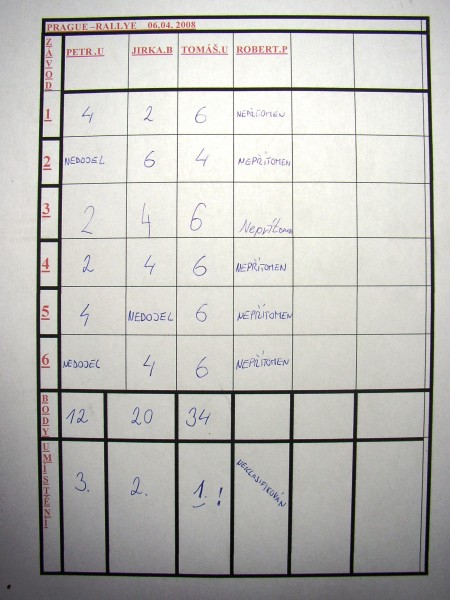 PRAGUE–RALLYE 06.04. 2008
ZÁVOD PETR.U JIRKA.B TOMÁŠ.U ROBERT.P
1 4 2 6 NEPŘÍTOMEN
2 NEDOJEL 6 4 NEPŘÍTOMEN
3 2 4 6 Nepřítomen
4 2 4 6 NEPŘÍTOMEN
5 4 NEDOJEL 6 NEPŘÍTOMEN
6 NEDOJEL 4 6 NEPŘÍTOMEN
BODY 12 20 34
UMÍSTĚNÍ 3. 2. 1.! NEKLASIFIKOVÁN